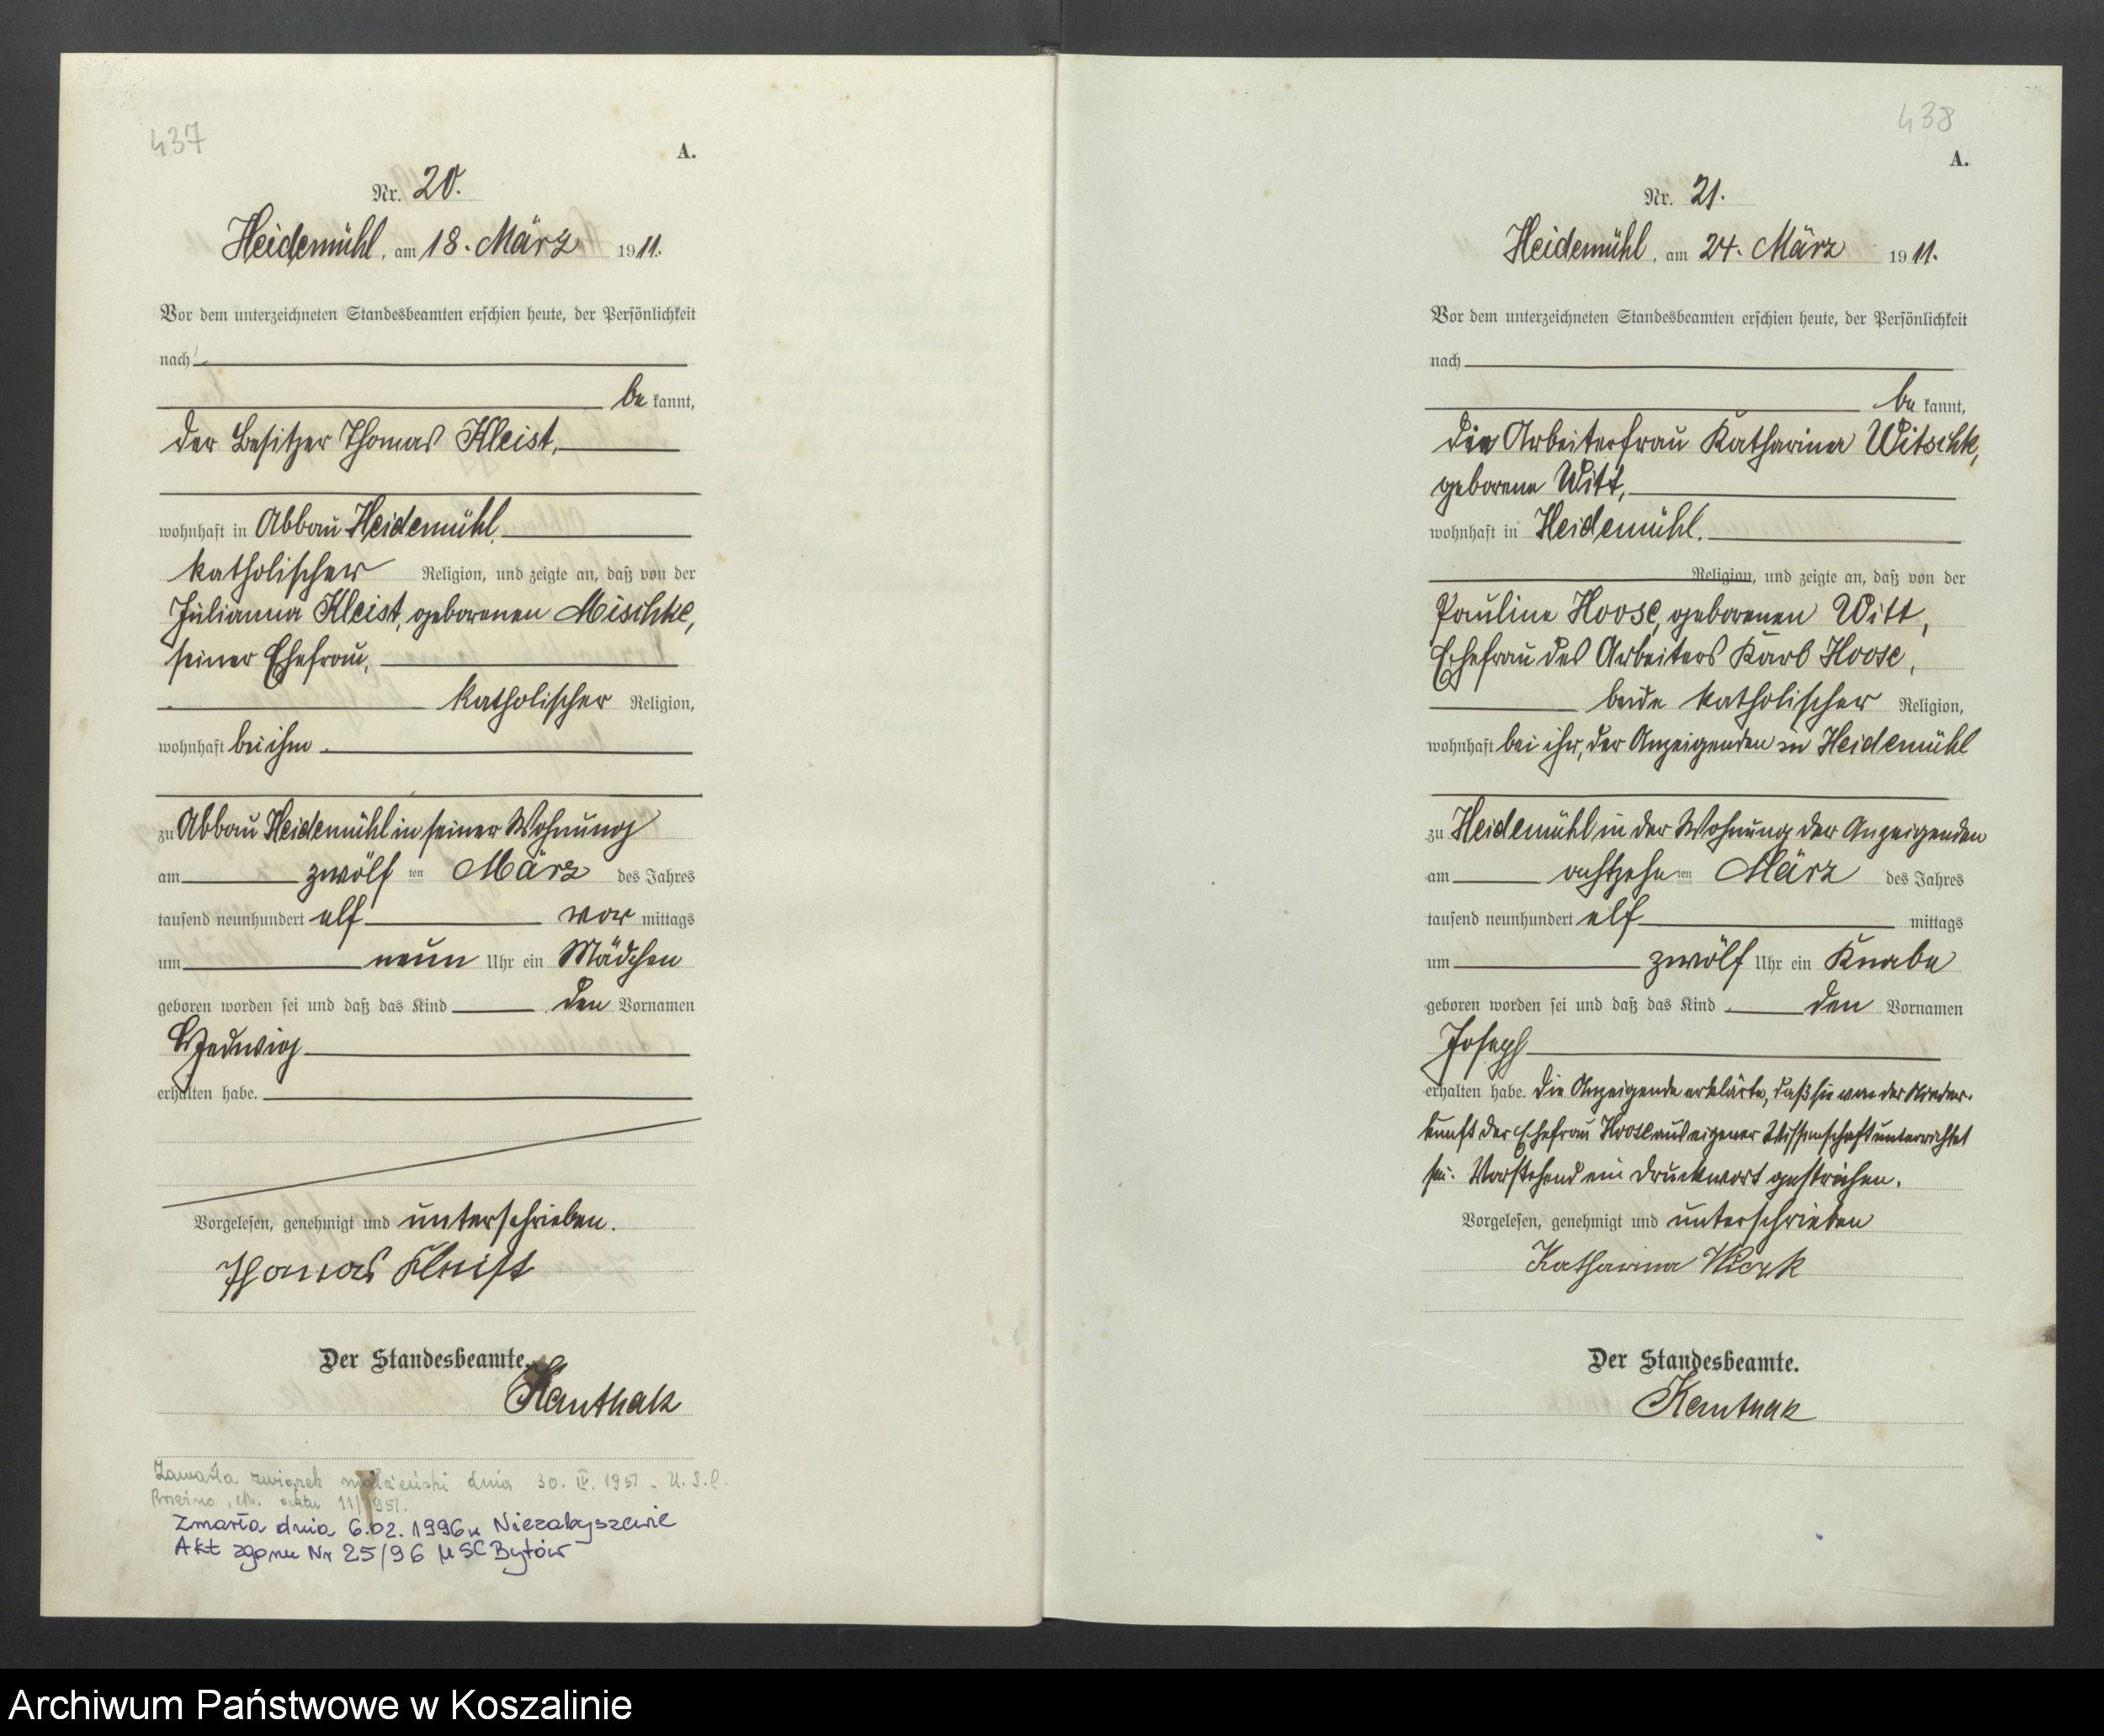 437
A.
Nr. 20.
Heidemühl, am 18. März 1911.
Vor dem unterzeichneten Standesbeamten erschien heute, der Persönlichkeit
nach
be kannt,
der Besitzer Thomas Kleist,
wohnhaft in Abbau Heidemühl,
katholischer Religion, und zeigte an, daß von der
Julianna Kleist, geborenen Mischke,
seiner Ehefrau,
katholischer Religion,
wohnhaft bei ihm
zu Abbau Heidemühl in seiner Wohnung
am zwölf ten März des Jahres
tausend neunhundert elf vor mittags
um neun Uhr ein Mädchen
geboren worden sei und daß das Kind den Vornamen
Hedwig
erhalten habe.
Vorgelesen, genehmigt und unterschrieben.
Thomas Kleist
Der Standesbeamte.
Kanthak
Zawarła związek małżeński dnia 30. IV. 1951 - U.S.C.
aktu 11/1951.
Zmarła dnia 6.02.1996 w Niezabyszewie
Akt zgonu Nr 25/96 USC Bytów
438
A.
Nr. 21.
Heidemühl, am 24. März 1911.
Vor dem unterzeichneten Standesbeamten erschien heute, der Persönlichkeit
nach
be kannt,
die Arbeiterfrau Katharina Witschk,
geborene Witt,
wohnhaft in Heidemühl.
Religion, und zeigte an, daß von der
Pauline Hoose, geborenen Witt,
Ehefrau des Arbeiters Karl Hoose,
beide katholischer Religion,
wohnhaft bei ihr, der Anzeigenden in Heidemühl
zu Heidemühl in der Wohnung der Anzeigenden
am achtzehn ten März des Jahres
tausend neunhundert elf mittags
um zwölf Uhr ein Knabe
geboren worden sei und daß das Kind den Vornamen
Joseph
erhalten habe. Die Anzeigende erklärte, daß sie von der Nieder-
kunft der Ehefrau Hoose aus eigener Wissenschaft unterrichtet
sei. Vorstehend ein Druckwort gestrichen.
Vorgelesen, genehmigt und unterschrieben
Katharina
Der Standesbeamte.
Kanthak
Archiwum Państwowe w Koszalinie